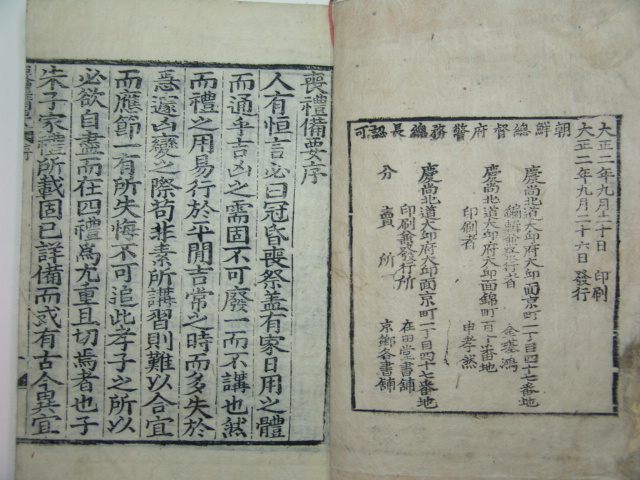 朝鮮總督府警務總長認可
大正二年九月二十日 印刷
大正二年九月二十六日 發行
慶尚北道大邱府大邱面京町一丁目四十七番地
編輯兼發行者 金璂鴻
慶尚北道大邱府大邱面錦町百十番地
印刷者 申孝然
慶尚北道大邱府大邱面京町一丁目四十七番地
印刷兼發行所 在田堂書鋪
分賣所 京鄕各書鋪
喪禮備要序
人有恒言必曰冠昏喪祭盖有家日用之體
而通乎吉凶之需固不可廢一而不講也然
而禮之用易行於平閒吉常之時而多失於
急遽凶變之際苟非素所講習則難以合宜
而應節一有所失悔不可追此孝子之所以
必欲自盡而在四禮爲尤重且切焉者也子
朱子家禮所載固已詳備而或有古今異宜